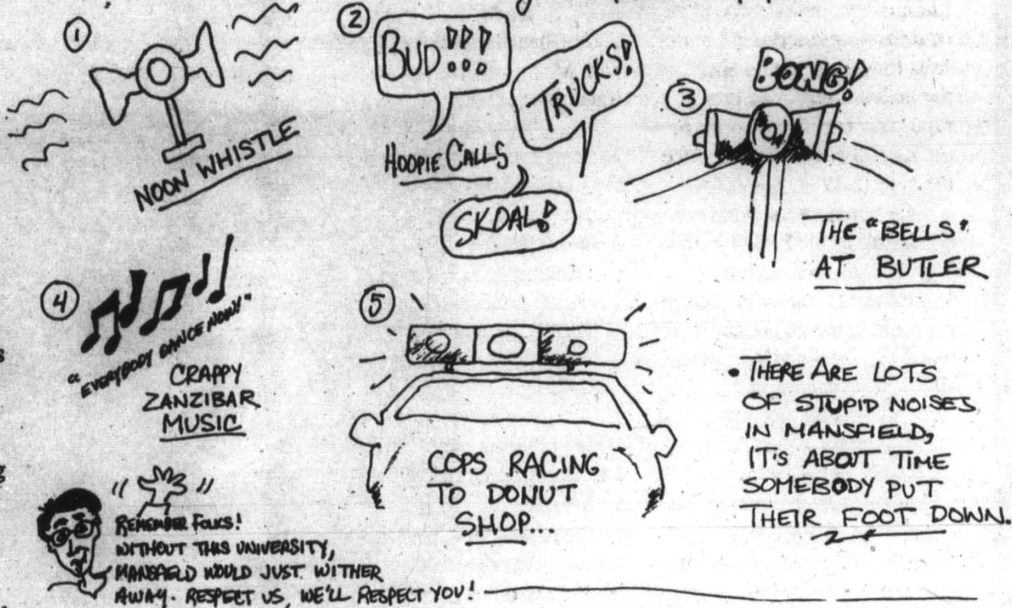 ①
NOON WHISTLE
②
BUD!!!
TRUCKS!
HOOPIE CALLS
SKOAL!
③
BONG!
THE "BELLS"
AT BUTLER
④
"EVERYBODY DANCE NOW!"
CRAPPY
ZANZIBAR
MUSIC
⑤
COPS RACING
TO DONUT
SHOP...
• THERE ARE LOTS
OF STUPID NOISES
IN MANSFIELD,
IT'S ABOUT TIME
SOMEBODY PUT
THEIR FOOT DOWN.
REMEMBER FOLKS!
WITHOUT THIS UNIVERSITY,
MANSFIELD WOULD JUST WITHER
AWAY. RESPECT US, WE'LL RESPECT YOU!